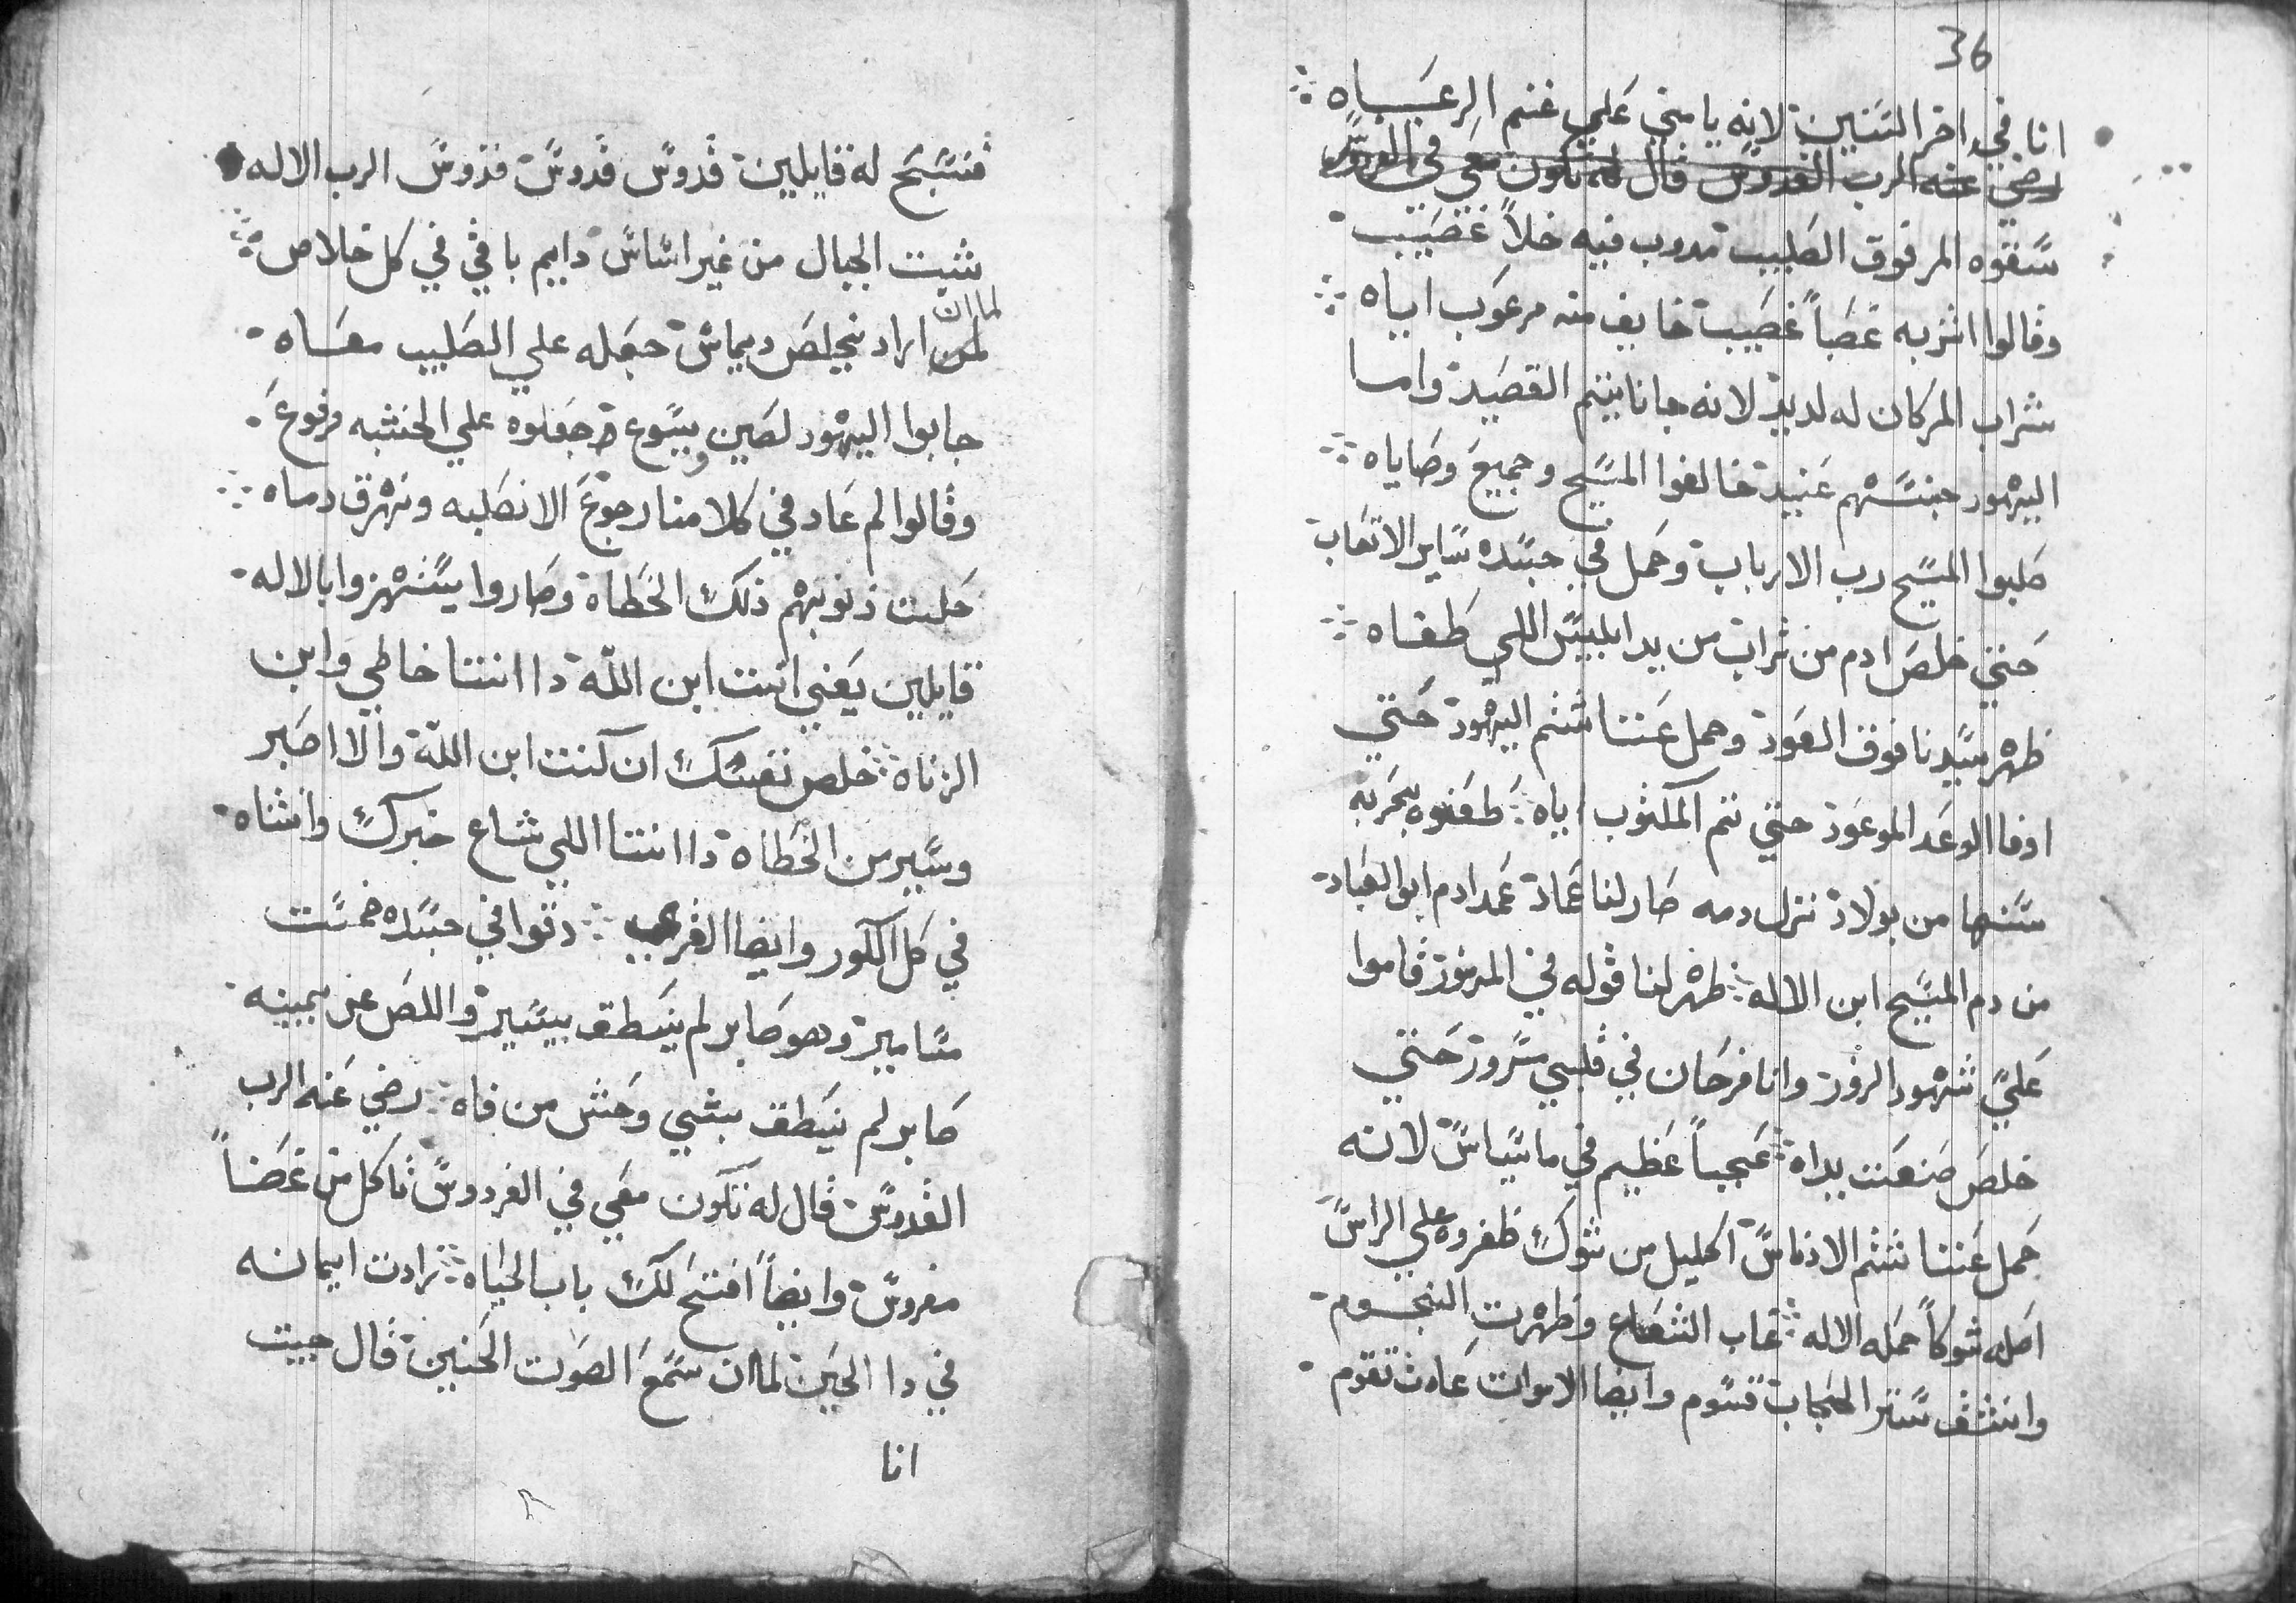 فنسبح له قايلين قدوس قدوس قدوس الرب الاله
شبت الجبال من غير اساس دايم باقي في كل خلاص
لما ان
لمن اراد نجلص ديماس جعله علي الصليب معاه
جابوا اليهود لصين ويسوع جعلوه علي الخشبه مرفوع
وقالوا لم عاد في كلامنا رجوع الا نصلبه ونهرق دماه
حلت ذنوبهم ذلك الخطاة وصاروا يستهزوا بالاله
قايلين يعني انت ابن الله دا انتا خاطي وابن
الزناه خلص نفسك ان كنت ابن الله والا اصبر
وسير من الخطاه دا انتا اللي شاع خبرك وانشاه
في كل الكور وايضا القري دقوا في جسده خمست
مسامير وهو صابر لم ينطق بيسير واللص عن يمينه
صابر لم ينطق بشي وحش من فاه رضي عنه الرب
القدوس قال له تكون معي في الفردوس تاكل من غصناً
مغروس وايضاً افتح لك باب الحياه زادت ايمانه
في دا الحين لما ان سمع الصوت الحنين قال جيت
انا
36
انا في اخر السنين لانه يامني علي غنم الرعاه
رضي عنه الرب القدوس قال له تكون معي في الفردوس
سقوه المر فوق الصليب مدوب فيه خلاً غضيب
وقالوا اشربه غصباً غصيب خايف منه مرعوب اياه
شراب المر كان له لديد لانه جانا يتم القصيد واما
اليهود جنسهم عنيد خالفوا المسيح وجميع وصاياه
صلبوا المسيح رب الارباب وحمل في جسده ساير الاتعاب
حتي خلص ادم من تراب من يد ابليس اللي طغاه
ظهر سيدنا فوق العود وحمل عنا شتم اليهود حتي
اوفا الوعد الموعود حتي تم المكتوب اياه طعنوه بحربه
سنها من بولاد نزل دمه صار لنا عماد عمد ادم ابو العباد
من دم المسيح ابن الاله ظهر لنا قوله في المزمور قاموا
علي شهود الزور وانا فرحان في قلبي مسرور حتي
خلص صنعت يداه عجباً عظيم في ماسياس لانه
حمل عنا شتم الادناس اكليل من شوك ظفروه علي الراس
اصله شوكاً حمله الاله غاب الشعاع وظهرت النجوم
وانشق ستر الحجاب قسوم وايضا الاموات عادت تقوم